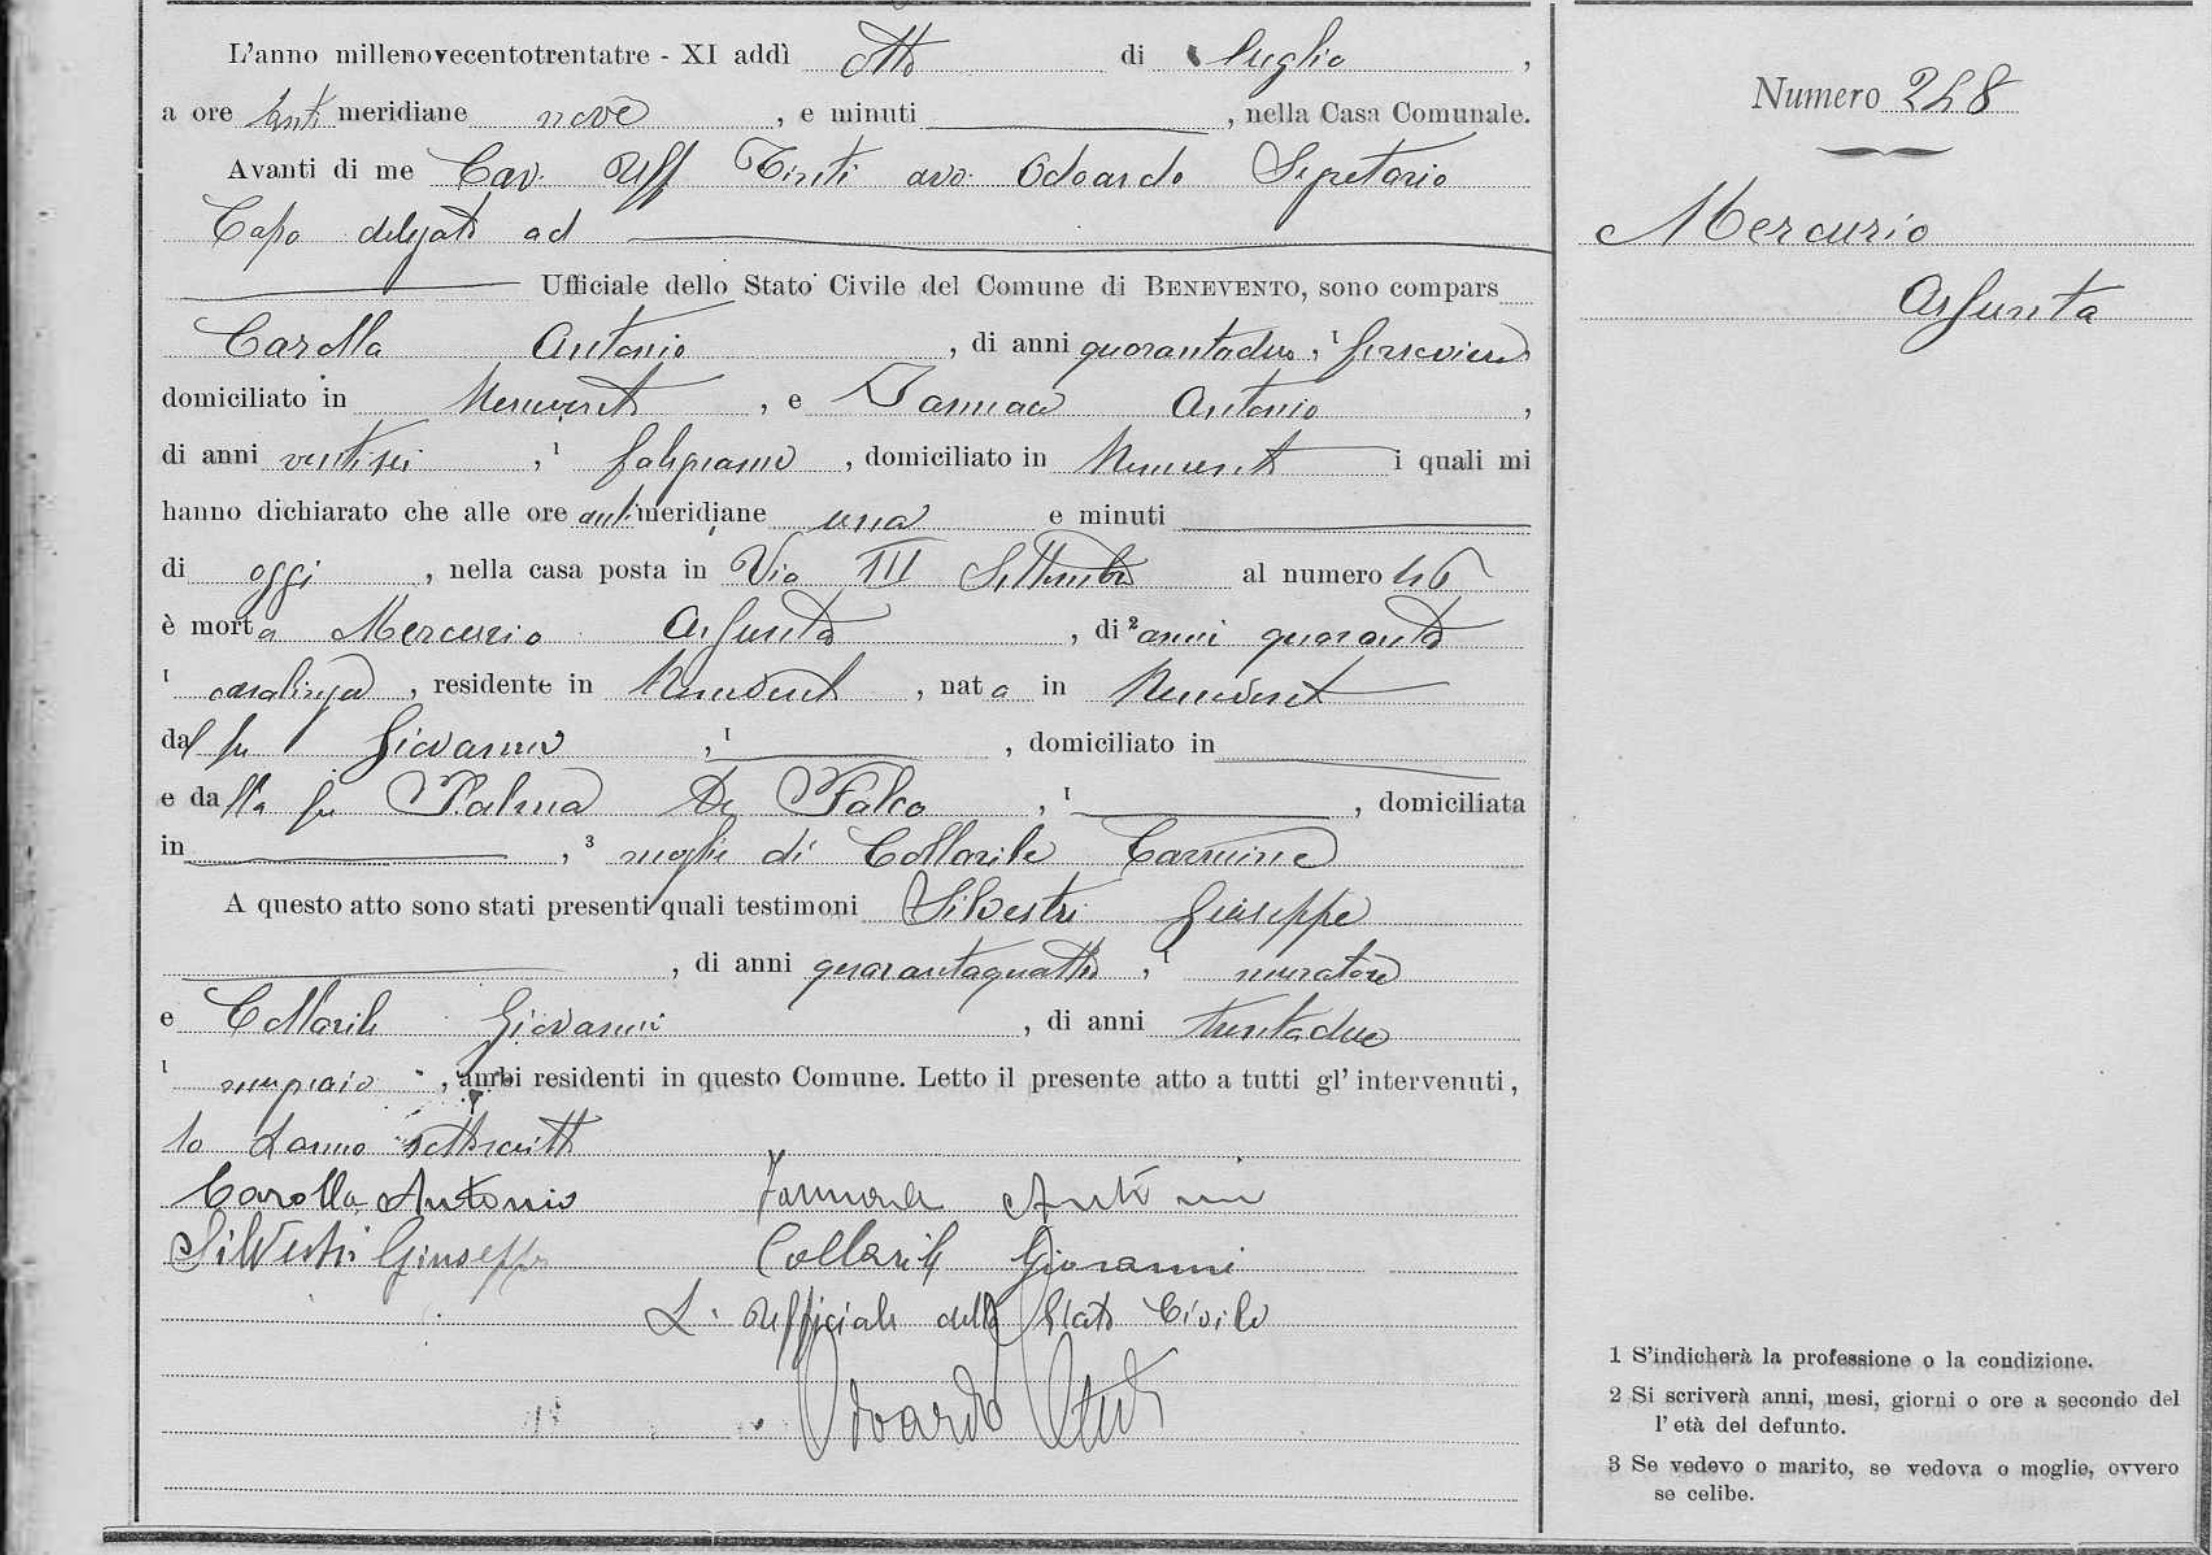 L'anno millenovecentotrentatre - XI addì otto di luglio,
a ore anti meridiane nove, e minuti, nella Casa Comunale.
Avanti di me Cav. Uff avv. Odoardo Segretario
Capo delegato ad
Ufficiale dello Stato Civile del Comune di BENEVENTO, sono compars
Carolla Antonio, di anni quarantadue, ¹ ferroviere
domiciliato in Benevento, e Antonio,
di anni ventisei, ¹ falegname, domiciliato in Benevento i quali mi
hanno dichiarato che alle ore anti meridiane una e minuti
di oggi, nella casa posta in Via III Settembre al numero 46
è morta Mercurio Assunta, di ² anni quaranta
¹ casalinga, residente in Benevento, nata in Benevento
dal fu Giovanni, ¹, domiciliato in
e dalla fu Palma De Falco, ¹, domiciliata
in, ³ moglie di Collarile Carmine
A questo atto sono stati presenti quali testimoni Silvestri Giuseppe
, di anni quarantaquattro, ¹ muratore
e Collarile Giovanni, di anni trentadue
¹, ambi residenti in questo Comune. Letto il presente atto a tutti gl' intervenuti,
lo hanno sottoscritto
Carolla Antonio
Silvestri Giuseppe Collarile Giovanni
L'Ufficiale dello Stato Civile
Odoardo
Numero 248
Mercurio
Assunta
1 S'indicherà la professione o la condizione.
2 Si scriverà anni, mesi, giorni o ore a secondo del
l' età del defunto.
3 Se vedevo o marito, se vedova o moglie, ovvero
se celibe.